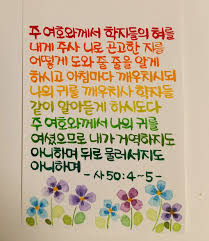 주 여호와께서 학자들의 혀를
내게 주사 나로 곤고한 자를
어떻게 도와 줄 줄을 알게
하시고 아침마다 깨우치시되
나의 귀를 깨우치사 학자들
같이 알아듣게 하시도다
주 여호와께서 나의 귀를
여셨으므로 내가 거역하지도
아니하며 뒤로 물러서지도
아니하며 -사50:4-5-